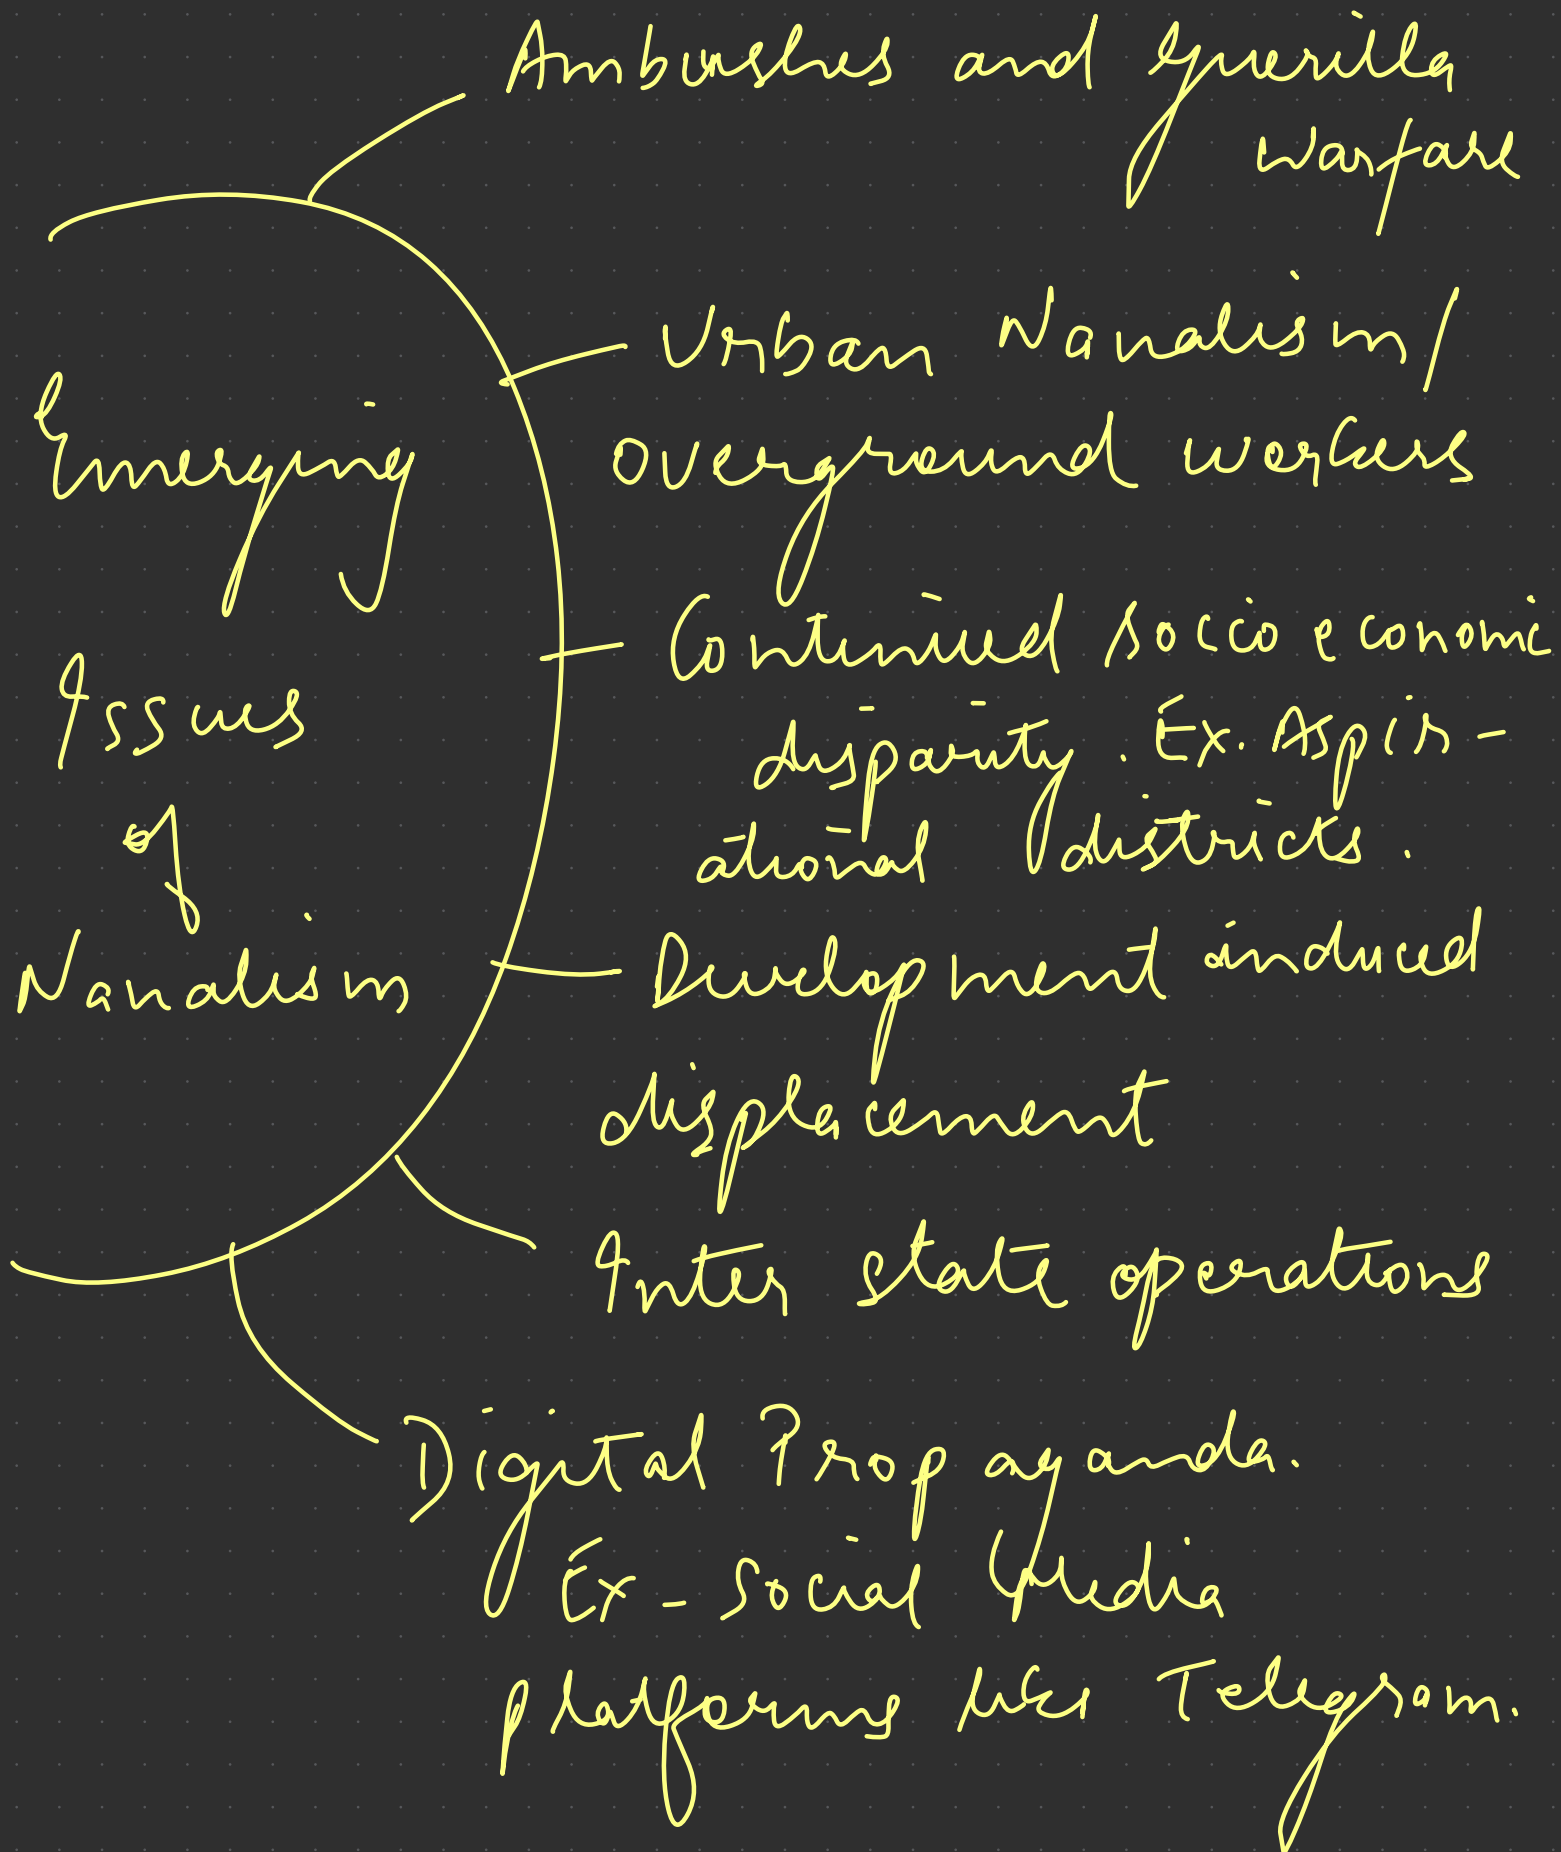 Emerging
Issues
of
Naxalism
Ambushes and guerilla
warfare
Urban Naxalism/
overground workers
Continued socio economic
disparity. Ex. Aspir-
ational districts.
Development induced
displacement
Inter state operations
Digital Propaganda.
Ex - Social Media
platforms like Telegram.